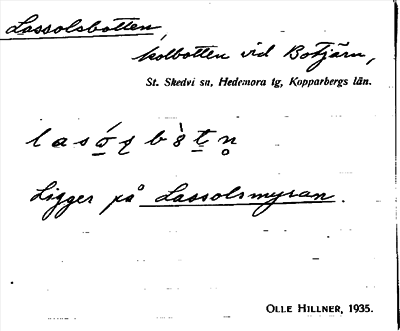 Lassolsbotten,
kolbotten vid Botjärn,
St. Skedvi sn, Hedemora tg, Kopparbergs län.
Ligger på Lassolsmyran.
OLLE HILLNER, 1935.